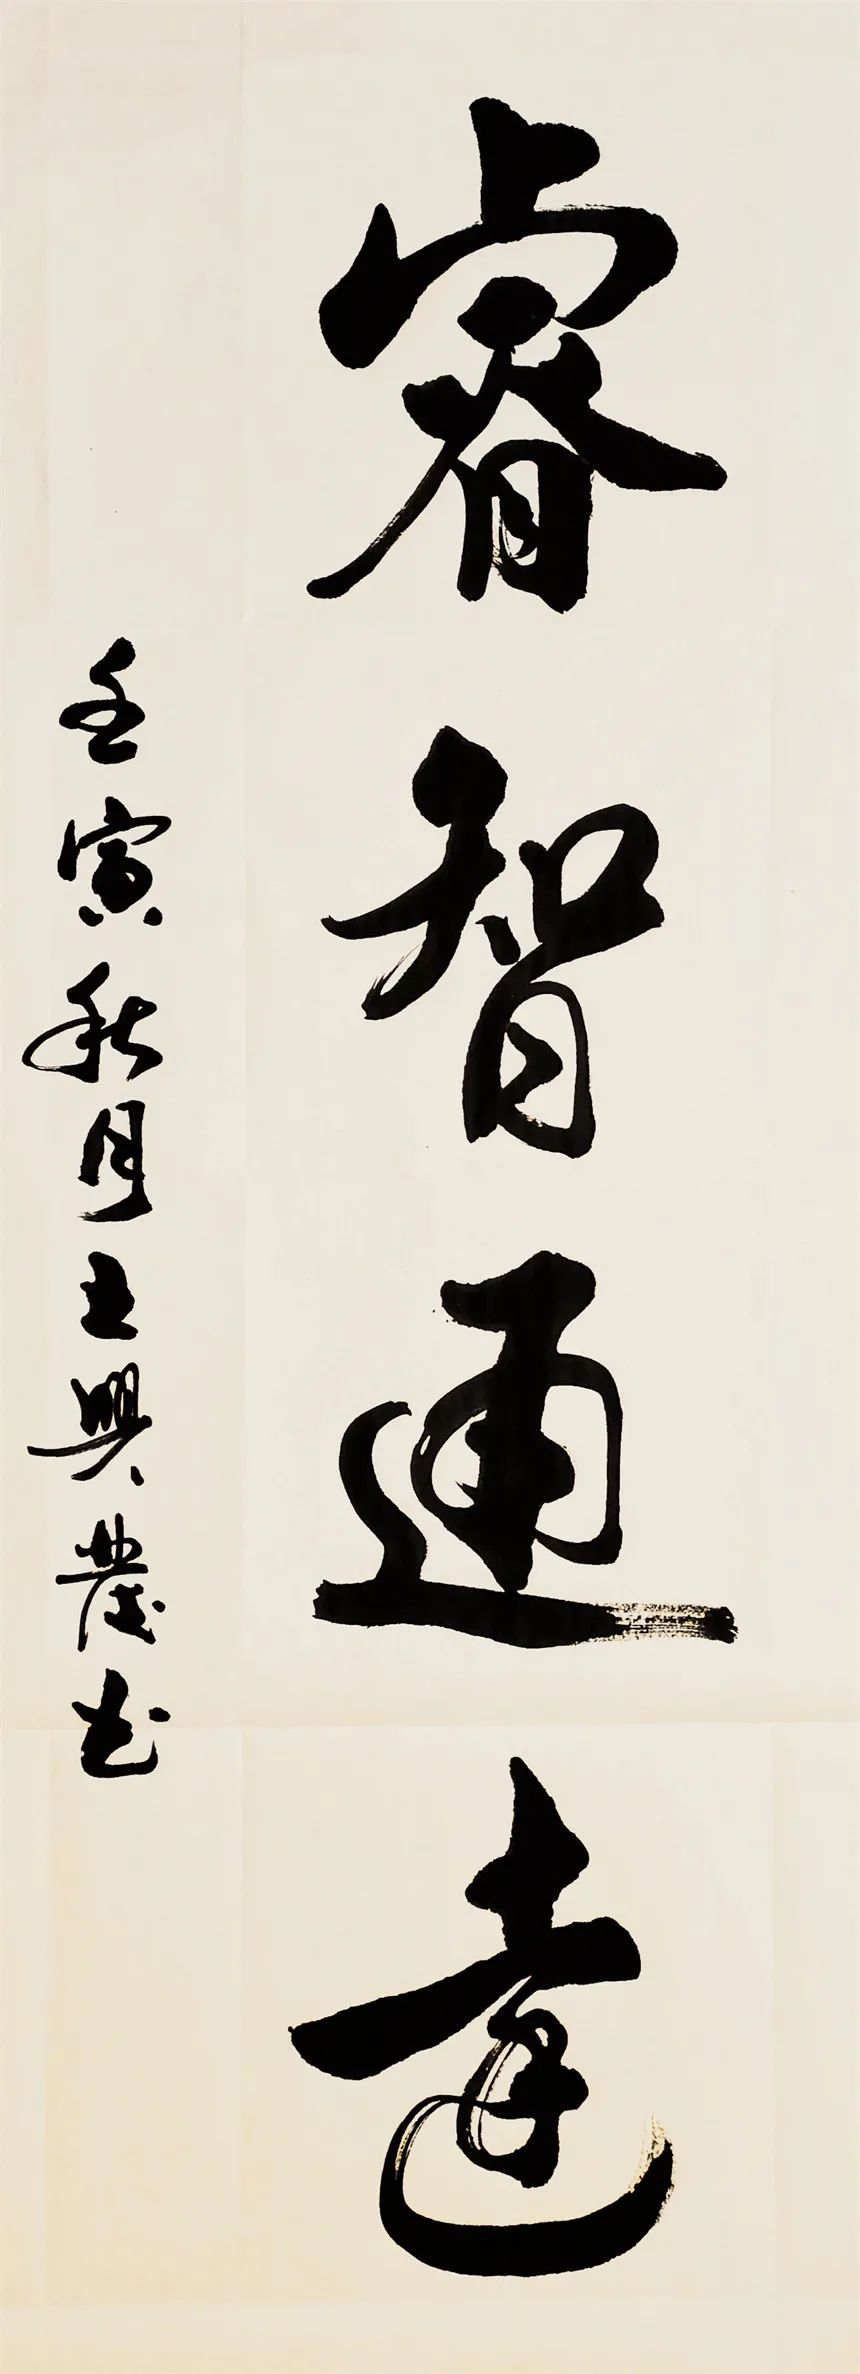 睿智通達
壬寅秋月王興農書